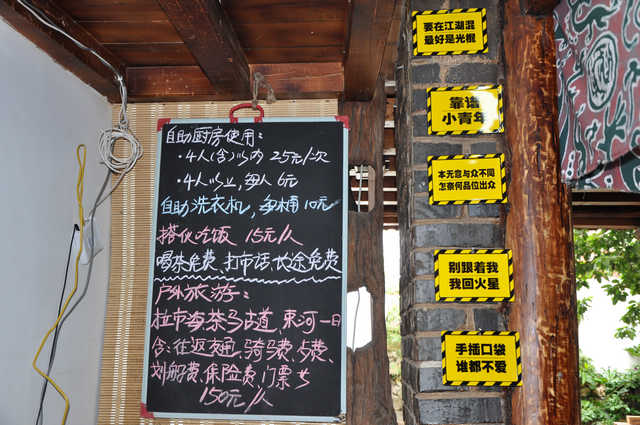 自助厨房使用:
·4人(含)以内 25元/次
·4人以上,每人 6元
自助洗衣机,每桶 10元
搭伙吃饭 15元/人
喝茶免费 打市话,长途免费
户外旅游:
拉市海茶马古道,束河一日
含:往返交通,骑马费,
划船费,保险费,门票
150元/人
要在江湖混
最好是光棍
靠谱
小青年
本无意与众不同
怎奈何品位出众
别跟着我
我回火星
手插口袋
谁都不爱